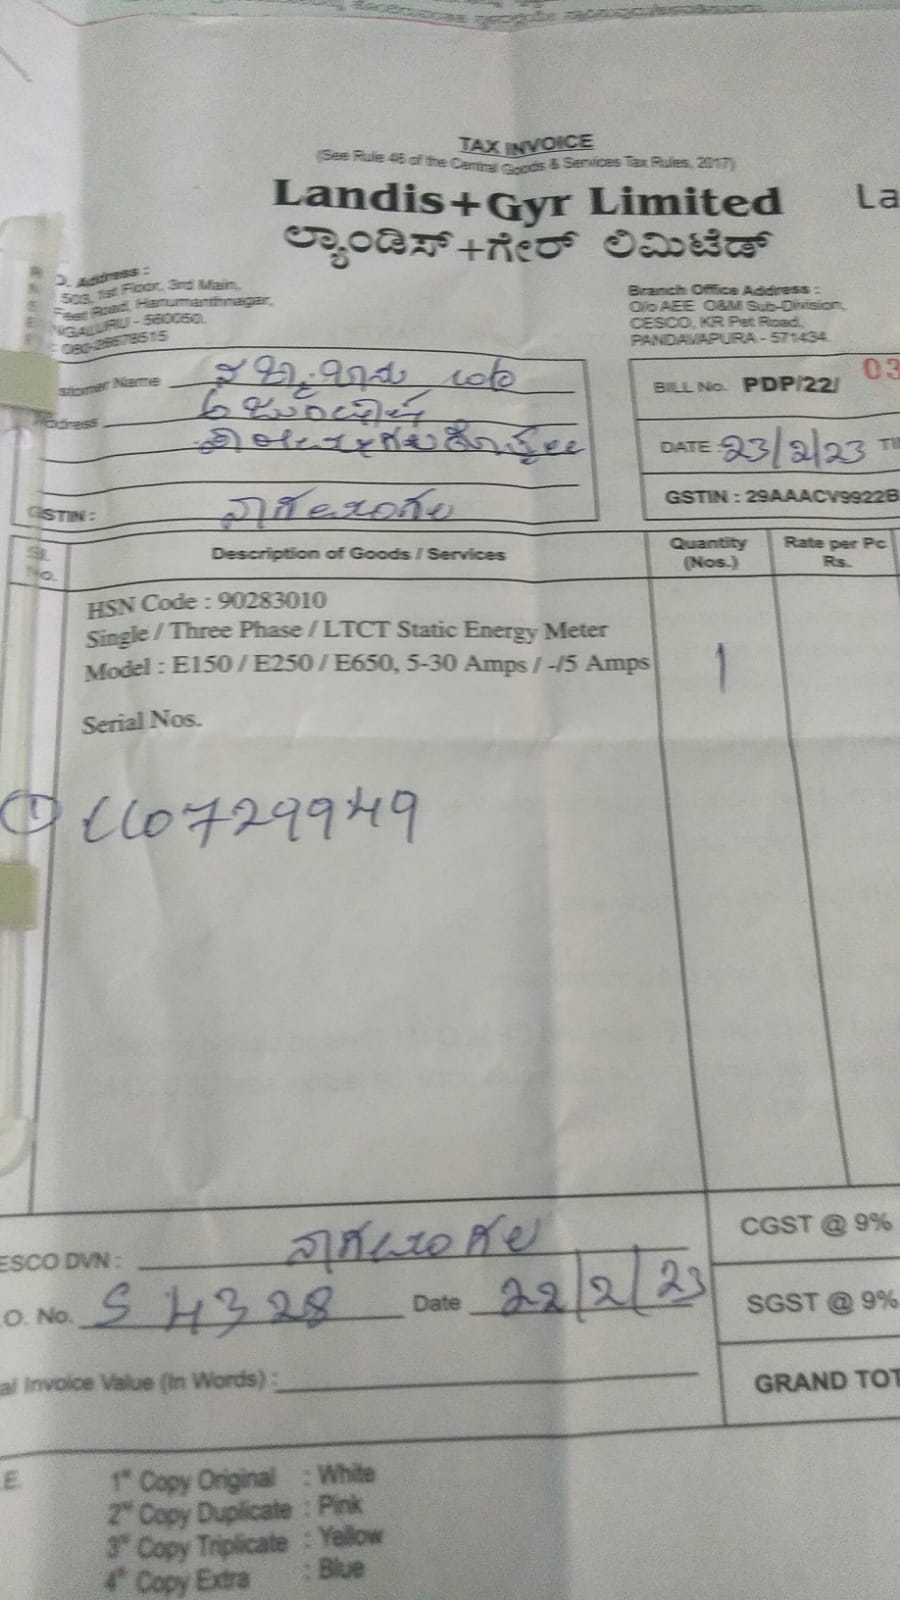 TAX INVOICE
(See Rule 46 of the Central Goods & Services Tax Rules, 2017)
Landis+Gyr Limited La
ಲ್ಯಾಂಡಿಸ್+ಗೇರ್ ಲಿಮಿಟೆಡ್
O. Address :
503, 1st Floor, 3rd Main,
Feet Road, Hanumanthnagar,
NGALURU - 560050.
: 080-26678515
Branch Office Address :
O/o AEE O&M Sub-Division,
CESCO, KR Pet Road,
PANDAVAPURA - 571434.
stomer Name
Address
BILL No. PDP/22/ 03
DATE : 23/2/23 TI
GSTIN :
GSTIN : 29AAACV9922B
Sl. No. Description of Goods / Services Quantity (Nos.) Rate per Pc Rs.
HSN Code : 90283010
Single / Three Phase / LTCT Static Energy Meter
Model : E150 / E250 / E650, 5-30 Amps / -/5 Amps 1
Serial Nos.
① LL0729949
CGST @ 9%
ESCO DVN :
O. No. S 4328 Date 22/2/23
SGST @ 9%
al Invoice Value (In Words) :
GRAND TOT
.E.
1st Copy Original : White
2nd Copy Duplicate : Pink
3rd Copy Triplicate : Yellow
4th Copy Extra : Blue